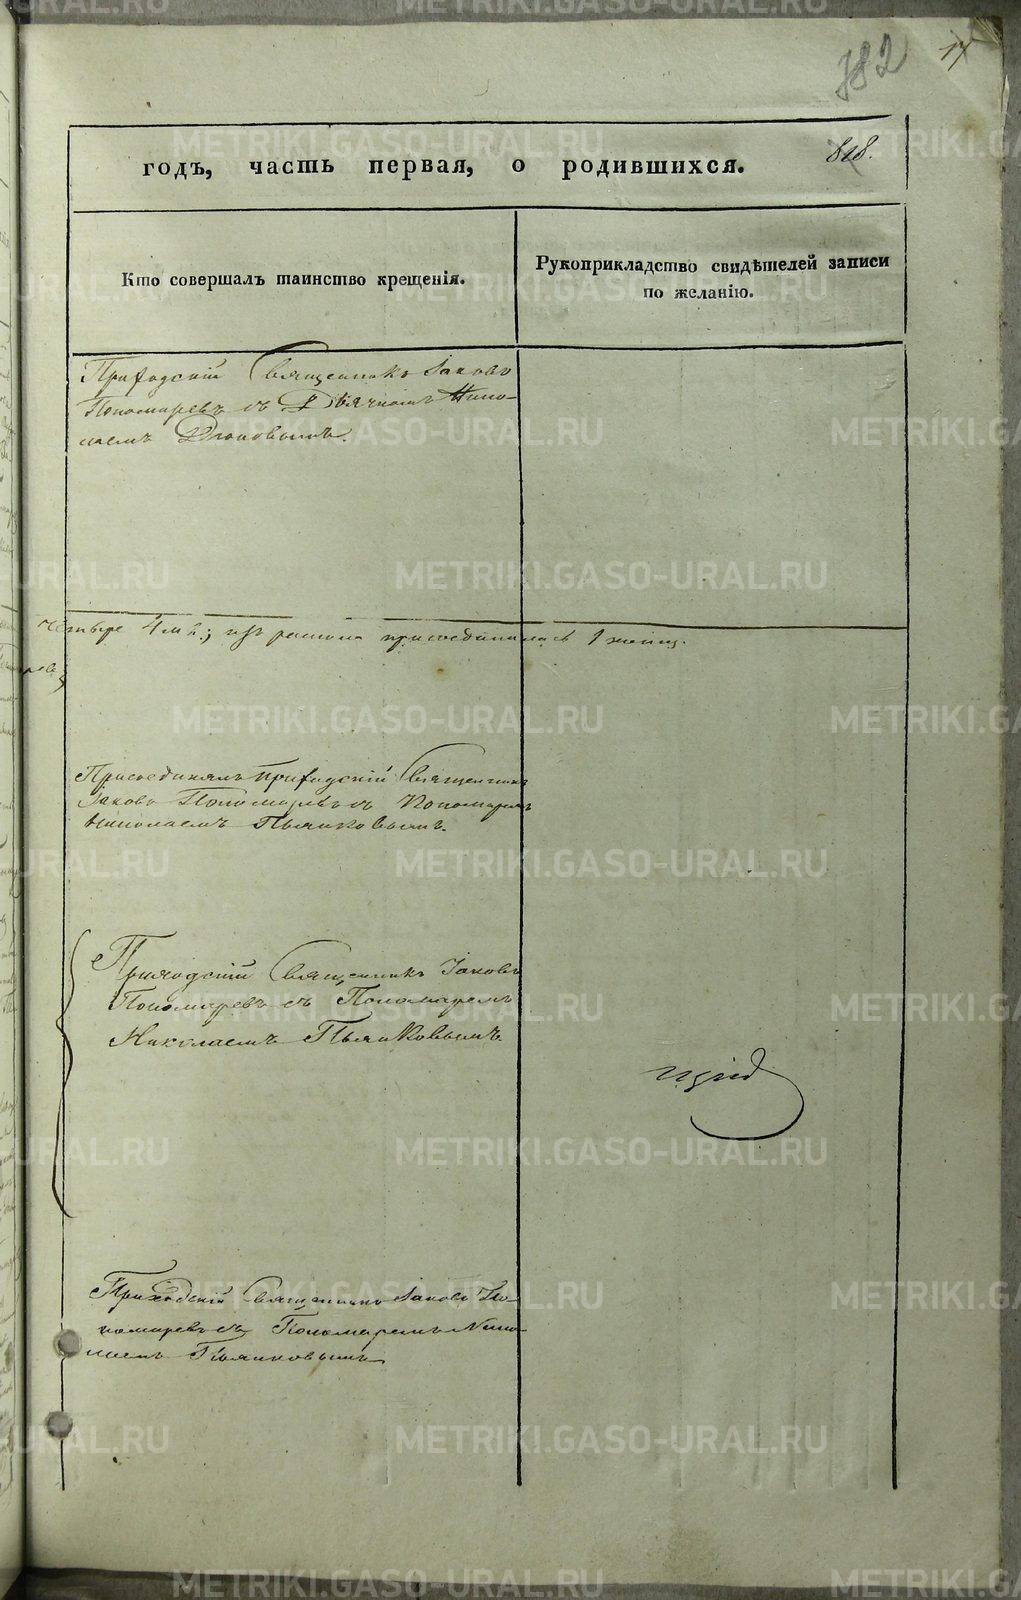 782
17
годъ, часть первая, о родившихся.
818.
Кто совершалъ таинство крещенія.
Рукоприкладство свидѣтелей записи
по желанію.
Приходскій Священникъ Іаковъ
Пономаревъ съ Дьячкомъ Нико-
лаемъ
четыре 4 м. п.; изъ раскола присоединилась 1 женщ.
Присоединялъ Приходскій Священникъ
Іаковъ Пономаревъ съ Пономаремъ
Николаемъ Пьянковымъ.
Приходскій Священникъ Іаковъ
Пономаревъ съ Пономаремъ
Николаемъ Пьянковымъ
Приходскій Священникъ Іаковъ По-
номаревъ съ Пономаремъ Нико-
лаемъ Пьянковымъ
METRIKI.GASO-URAL.RU